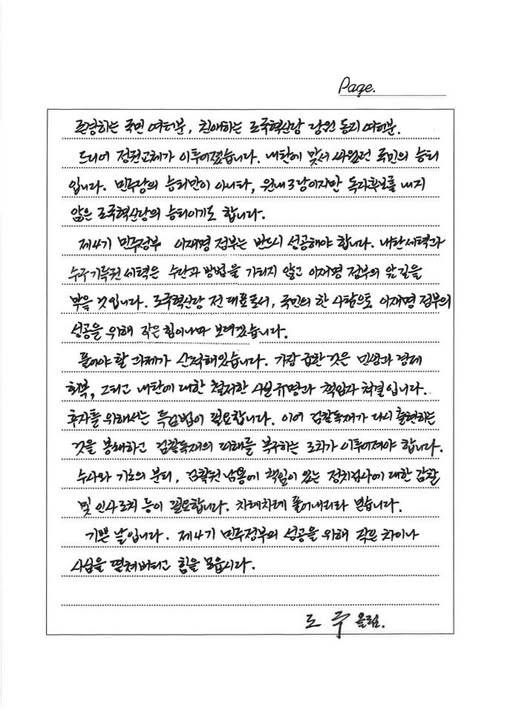 Page.
존경하는 국민 여러분, 친애하는 조국혁신당 당원 동지 여러분.
드디어 정권교체가 이루어졌습니다. 내란에 맞서 싸웠던 국민의 승리
입니다. 민주당의 승리만이 아니라, 원내 3당이지만 독자후보를 내지
않은 조국혁신당의 승리이기도 합니다.
제4기 민주정부 이재명 정부는 반드시 성공해야 합니다. 내란세력과
수구기득권 세력은 수단과 방법을 가리지 않고 이재명 정부의 앞길을
막을 것입니다. 조국혁신당 전 대표로서, 국민의 한 사람으로 이재명 정부의
성공을 위해 작은 힘이나마 보태겠습니다.
풀어야 할 과제가 산적해있습니다. 가장 급한 것은 민생과 경제
회복, 그리고 내란에 대한 철저한 진상규명과 책임자 처벌입니다.
후자를 위해서는 특검법이 필요합니다. 이어 검찰독재가 다시 출현하는
것을 봉쇄하고 검찰독재의 피해를 복구하는 조치가 이루어져야 합니다.
수사와 기소의 분리, 검찰권 남용에 책임이 있는 정치검사에 대한 감찰
및 인사조치 등이 필요합니다. 차례차례 풀어내리라 믿습니다.
기쁜 날입니다. 제4기 민주정부의 성공을 위해 작은 차이나
사심을 떨쳐버리고 힘을 모읍시다.
조국 올림.